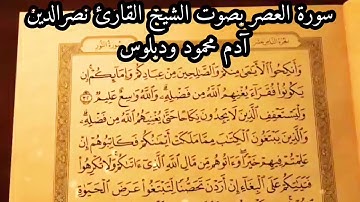 سورة العصر بصوت الشيخ القارئ نصرالدين
آدم محمود ودبلوس
وَأَنكِحُوا۟ ٱلْأَيَـٰمَىٰ مِنكُمْ وَٱلصَّـٰلِحِينَ مِنْ عِبَادِكُمْ وَإِمَآئِكُمْ إِن
يَكُونُوا۟ فُقَرَآءَ يُغْنِهِمُ ٱللَّهُ مِن فَضْلِهِۦ وَٱللَّهُ وَٰسِعٌ عَلِيمٌ ٣٢
وَلْيَسْتَعْفِفِ ٱلَّذِينَ لَا يَجِدُونَ نِكَاحًا حَتَّىٰ يُغْنِيَهُمُ ٱللَّهُ مِن فَضْلِهِۦ
وَٱلَّذِينَ يَبْتَغُونَ ٱلْكِتَـٰبَ مِمَّا مَلَكَتْ أَيْمَـٰنُكُمْ فَكَاتِبُوهُمْ إِنْ
عَلِمْتُمْ فِيهِمْ خَيْرًا وَءَاتُوهُم مِّن مَّالِ ٱللَّهِ ٱلَّذِىٓ ءَاتَىٰكُمْ وَلَا تُكْرِهُوا۟
فَتَيَـٰتِكُمْ عَلَى ٱلْبِغَآءِ إِنْ أَرَدْنَ تَحَصُّنًا لِّتَبْتَغُوا۟ عَرَضَ ٱلْحَيَوٰةِ